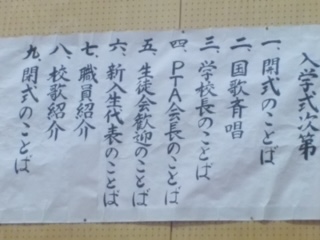 入学式次第
一、開式のことば
二、国歌斉唱
三、学校長のことば
四、PTA会長のことば
五、生徒会歓迎のことば
六、新入生代表のことば
七、職員紹介
八、校歌紹介
九、閉式のことば